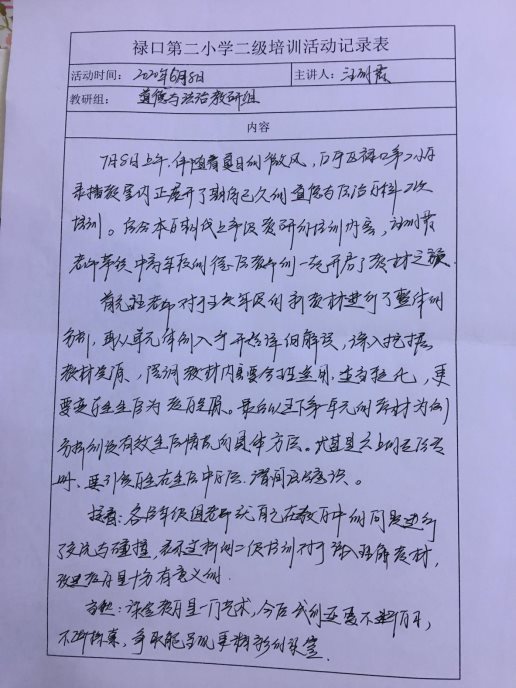 禄口第二小学二级培训活动记录表
活动时间： 2020年6月8日 主讲人：
教研组： 道德与法治教研组
内容
7月8日上午，伴随着夏日的微风，江宁区禄口第二小学
录播教室内正展开了期待已久的道德与法治学科二次
培训。结合本学科线上年级教研的培训内容，
老师带领中高年级的德法教师们一起开启了教材之旅。
首先 老师对于 年级的新教材进行了整体的
分析，再从单元体例入手开始详细解读，深入挖掘
教材资源，强调教材内容要合理运用，生活拓展，更
要变学生生活为教学资源。最后以 下第一单元的教材为例
分析创设有效生活情境的具体方法。尤其是六上的
时，要引领学生在生活中 意识。
接着，各年级组老师就自己在教学中的问题进行
了交流与碰撞，表示这样的二级培训对于深入理解教材，
改进教学是十分有意义的。
课堂教学是一门艺术，今后我们还要不断学习，
不断探索，争取能呈现更精彩的课堂。